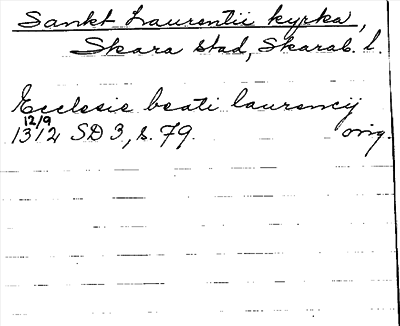 Sankt Laurentii kyrka,
Skara stad, Skarab. l.
Ecclesie beati laurencij
12/9
1312 SD 3, s. 79. orig.